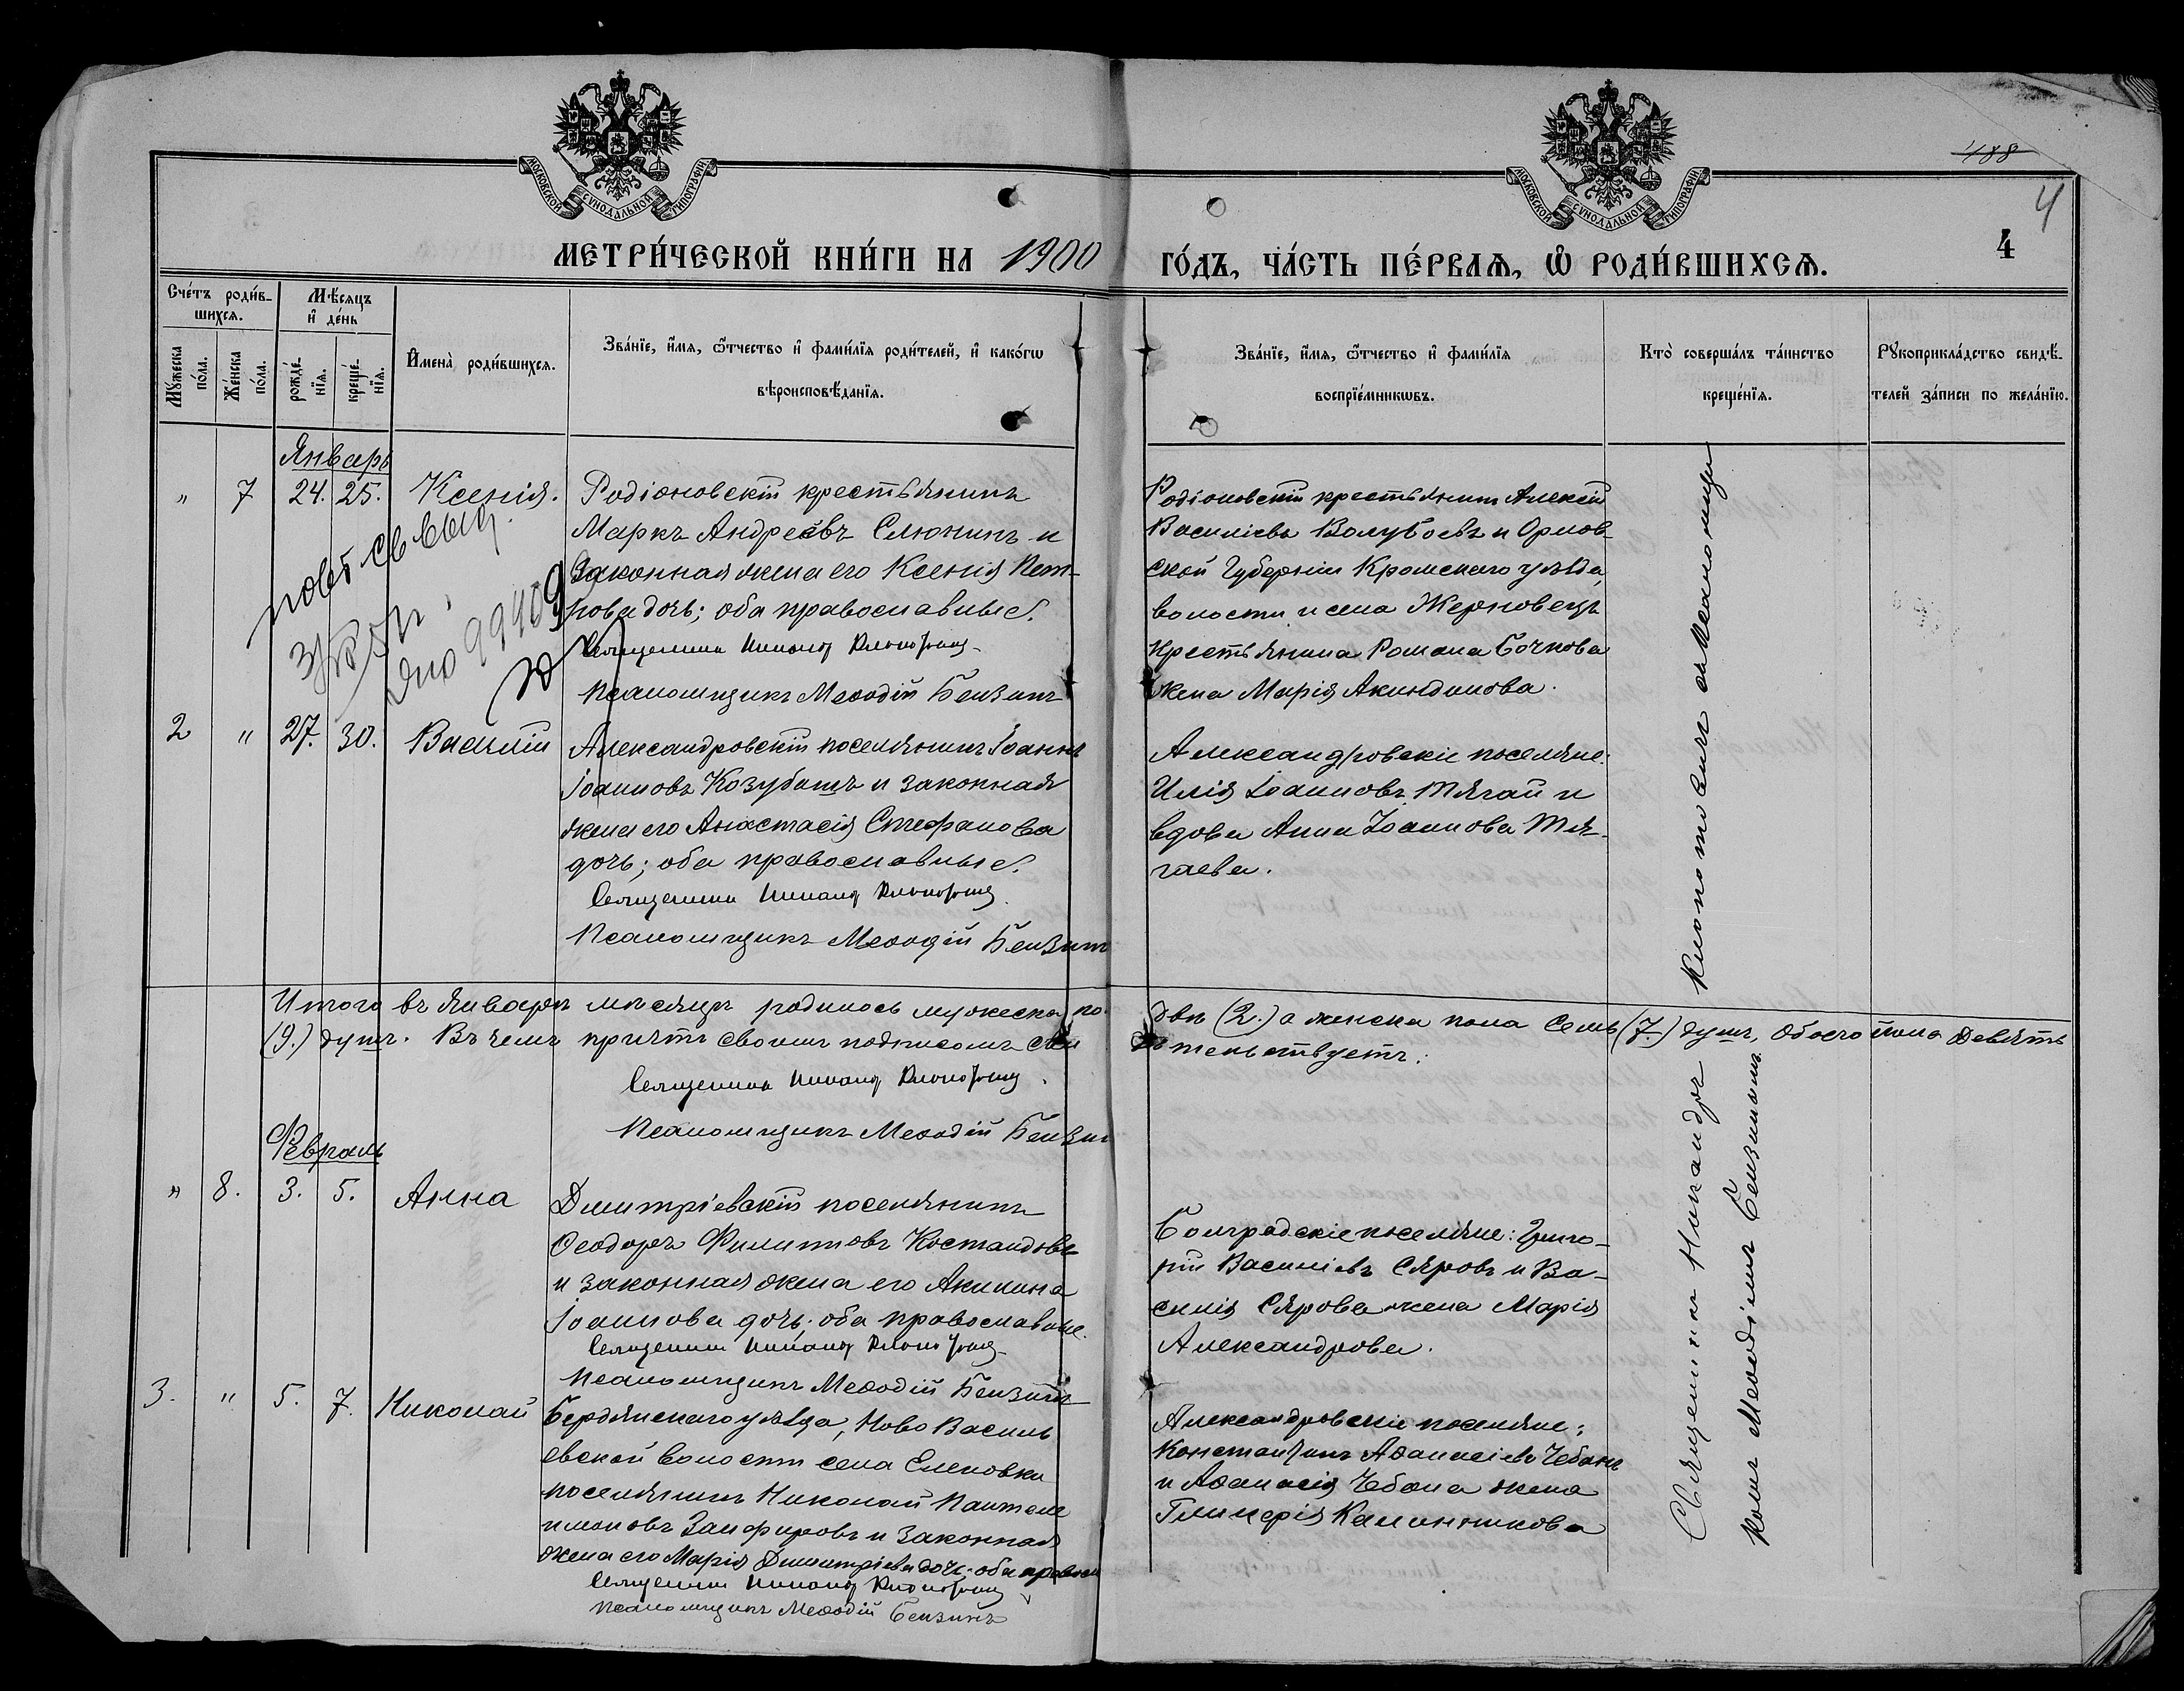 МОСКОВСКОЙ СѴНОДАЛЬНОЙ ТИПОГРАФІИ
МОСКОВСКОЙ СѴНОДАЛЬНОЙ ТИПОГРАФІИ
188
4
МЕТРИ́ЧЕСКОЙ КНИ́ГИ НА 1900 ГО́ДЪ, ЧА́СТЬ ПЕ́РВАѦ, Ѡ҆ РОДИ́ВШИХСѦ.
4
Сче́тъ роди́в-
шихсѧ.
Мѣ́сѧцъ
и҆ де́нь
Мꙋ́жеска
по́ла.
Же́нска
по́ла.
рожде́-
нїѧ.
креще́-
нїѧ.
И҆мена̀ роди́вшихсѧ.
Зва́нїе, и҆́мѧ, ѻ҆́тчество и҆ фами́лїѧ роди́телей, и҆ како́гѡ
вѣроисповѣ́данїѧ.
Зва́нїе, и҆́мѧ, ѻ҆́тчество и҆ фами́лїѧ
воспрїе́мникѡвъ.
Кто̀ соверша́лъ та́инство
креще́нїѧ.
Рꙋкоприкла́дство свидѣ́-
телей за́писи по жела́нїю.
Январь
" 7 24. 25. Ксенія.
Родіоновскій крестьянинъ
Маркъ Андреевъ Слюнинъ и
законная жена его Ксенія Пет-
рова дочь; оба православные.
Священникъ Никандр Клопотович
Псаломщикъ Меѳодій Бензинъ
Родіоновскій крестьянинъ Алексій
Василіевъ Волубоевъ и Орлов-
ской Губерніи Кромскаго уѣзда,
волости и села Жерновецъ
крестьянина Романа Бочкова
жена Марія Акиндинова.
повт св выд.
99409
2 " 27. 30. Василій
Александровскій поселянинъ Іоаннъ
Іоанновъ Козубашъ и законная
жена его Анастасія Стефанова
дочь; оба православные.
Священникъ Никандр Клопотович
Псаломщикъ Меѳодій Бензинъ
Александровскіе поселяне:
Илія Іоанновъ Тягай и
вдова Анна Іоаннова Тя-
гаева.
Итого въ январѣ мѣсяцѣ родилось мужеска по- два (2.) а женска пола семь (7.) душъ, обоего пола девять
(9.) душъ. Въ чемъ причтъ своимъ подписомъ сви детельствуетъ:
Священникъ Никандр Клопотович
Псаломщикъ Меѳодій Бензинъ
Февраль
" 8. 3. 5. Анна
Димитріевскій поселянинъ
Ѳеодоръ Филиповъ Костандовъ
и законная жена его Акилина
Іоаннова дочь; оба православные.
Священникъ Никандр Клопотович
Псаломщикъ Меѳодій Бензинъ
Болградскіе поселяне: Григо-
рій Василіевъ Сяровъ и Ва-
силія Сярова жена Марія
Александрова.
3. " 5. 7. Николай
Бердянскаго уѣзда, Ново Василь
евской волости села Еленовки
поселянинъ Николай Пантеле
имоновъ Занфировъ и законная
жена его Марія Димитріева дочь; оба правосл
Священникъ Никандр Клопотович
Псаломщикъ Меѳодій Бензинъ
Александровскіе поселяне:
Константинъ Аѳанасіевъ Чебанъ
и Аѳанасія Чебана жена
Гликерія Калинникова
Священникъ Никандръ Клопотовичъ съ псаломщи
комъ Меѳодіемъ Бензинымъ